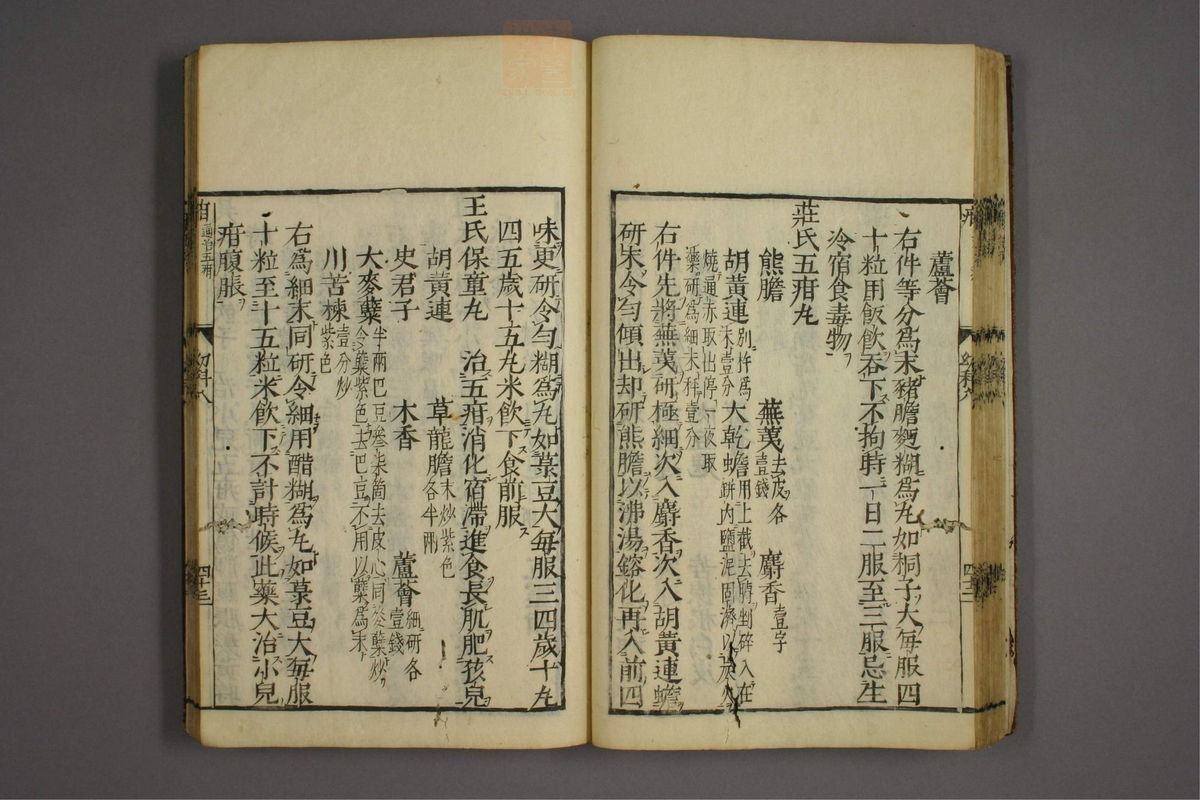 蘆薈
右件等分爲末豬膽麪糊爲丸如桐子大每服四
十粒用飯飲吞下不拘時一日二服至三服忌生
冷宿食毒物
莊氏五疳丸
熊膽　蕪荑去皮各壹錢　麝香壹字
胡黃連別杵爲末壹分　大乾蟾用上截去
燒通赤取出停一夜取
藥研爲細末秤壹分
右件先將蕪荑研極細次入麝香次入胡黃連蟾
研末令勻傾出却研熊膽以沸湯鎔化再入前四
味更研令勻糊爲丸如菉豆大每服三四歲十丸
四五歲十五丸米飲下食前服
王氏保童丸　治五疳消化宿滯進食長肌肥孩兒
胡黃連　草龍膽末炒紫色各半兩
史君子　木香　蘆薈細研各壹錢
大麥糵半兩巴豆叄柒箇去皮心同麥糵炒
令糵紫色去巴豆不用以糵爲末
川苦楝壹分炒紫色
右爲細末同研令細用醋糊爲丸如菉豆大每服
十粒至十五粒米飲下不計時候此藥大治小兒
疳腹脹
幼科八
四十三